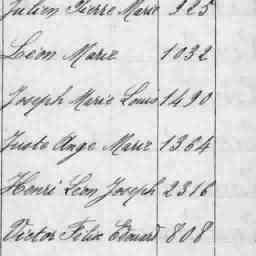 Julien Pierre Marie 925
Léon Marie 1032
Joseph Marie Louis 1490
Juste Ange Marie 1364
Henri Léon Joseph 2316
Victor Félix Edouard 808